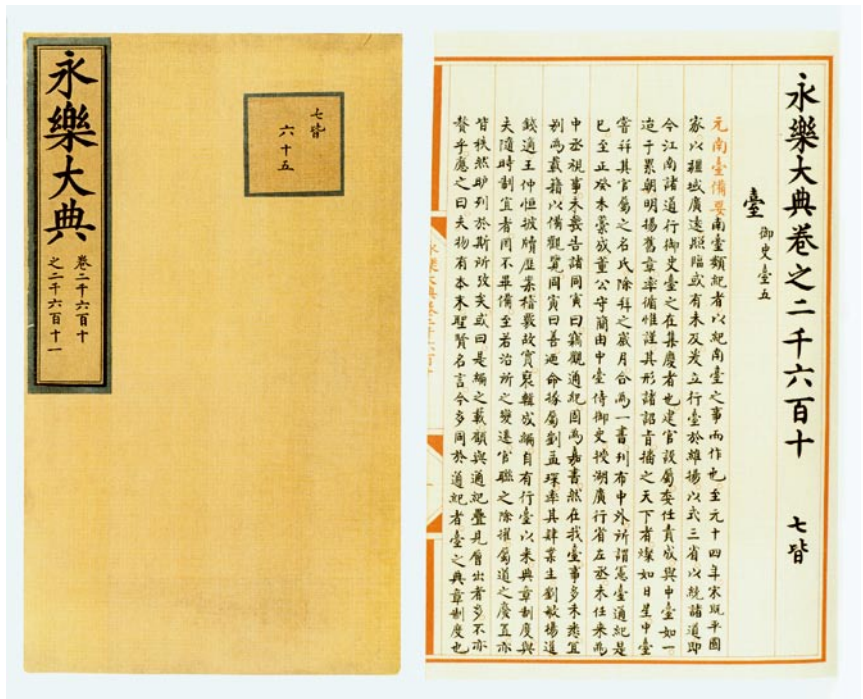 永樂大典
卷二千六百十
之二千六百十一
七皆
六十五
永樂大典卷之二千六百十 七皆
臺 御史臺五
元南臺備要南臺類紀者以紀南臺之事而作也至元十四年宋既平國
家以疆域廣遠照臨或有未及爰立行臺於維揚以式三省以統諸道即
今江南諸道行御史臺之在集慶者也建官設屬委任責成與中臺如一
迨于累朝明揚舊章率循惟謹其形諸詔旨播之天下者燦如日星中臺
嘗輯其官屬之名氏除拜之歲月合為一書刊布中外所謂憲臺通紀是
已至正癸未藁成董公守簡由中臺侍御史授湖廣行省左丞未任來為
中丞視事未幾告諸同寅曰竊觀通紀固為嘉書然在我臺事多未悉宜
別為載籍以備觀覽同寅曰善迺命掾屬劉孟琛率其肆業生劉敏楊進
錢適王仲恒披牘歷案稽覈故實裒輯成編自有行臺以來典章制度與
夫隨時制宜者罔不畢備至若治所之變遷官聯之除擢屬道之廢置亦
皆秩然昈列於斯所攷矣或曰是編之載顧與通紀疊見層出者多不亦
贅乎應之曰夫物有本末聖賢名言今多同於通紀者臺之典章制度也
永樂大典卷二千六百十